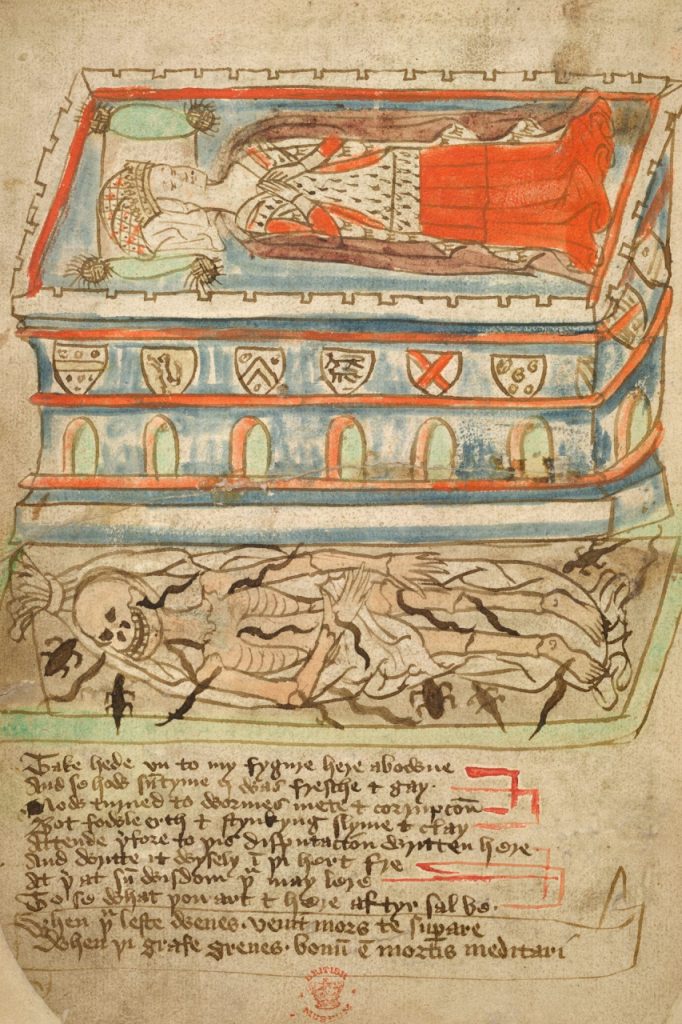 Take hede vn to my fygure here abowne
And so how sūtyme I was fresche & gay
Now turned to wormes mete & corrupcoñ
Bot fowle erth & stynkyng slyme & clay
Attende yͬfore to yis disputacion written here
And writte it wysely ī yi hert fre
At yͬ at sū wisdom yᵘ may lere
To se what you art & here aftyr sal be
When yᵘ leste wenes · venit mors te supare
When yi grafe grenes · bonū ē mortis meditari
BRITISH
MUSEUM